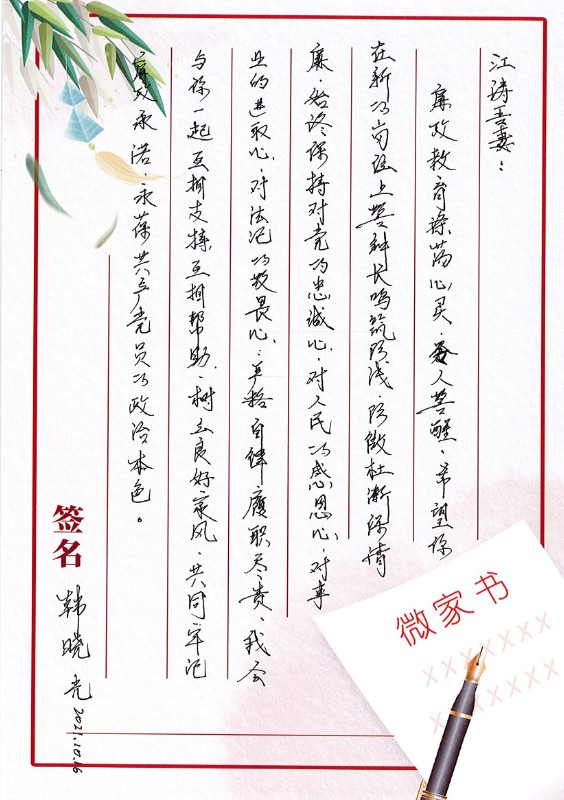 江涛吾妻：
廉政教育涤荡心灵，令人警醒，希望你
在新的岗位上警钟长鸣筑防线，防微杜渐保清
廉，始终保持对党的忠诚心，对人民的感恩心，对事
业的进取心，对法纪的敬畏心，严格自律履职尽责，我会
与你一起互相支撑，互相帮助，树立良好家风，共同牢记
廉政承诺，永葆共产党员的政治本色。
签名 韩晓亮 2021.10.16
微家书
XXXXXXX
XXXXXXX